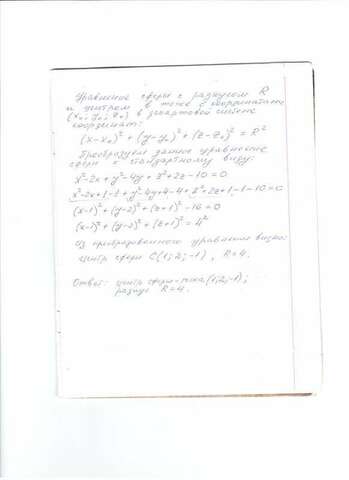 Уравнение сферы с радиусом R
и центром в точке с координатами
(x₀; y₀; z₀) в декартовой системе
координат:
(x-x₀)² + (y-y₀)² + (z-z₀)² = R²
Преобразуем данное уравнение
сферы к стандартному виду:
x²-2x+y²-4y+z²+2z-10=0
x²-2x+1-1+y²-4y+4-4+z²+2z+1-1-10=0
(x-1)²+(y-2)²+(z+1)²-16=0
(x-1)²+(y-2)²+(z+1)²=4²
Из преобразованного уравнения видно:
центр сферы C(1; 2; -1), R=4.
Ответ: центр сферы-точка (1; 2; -1);
радиус R=4.